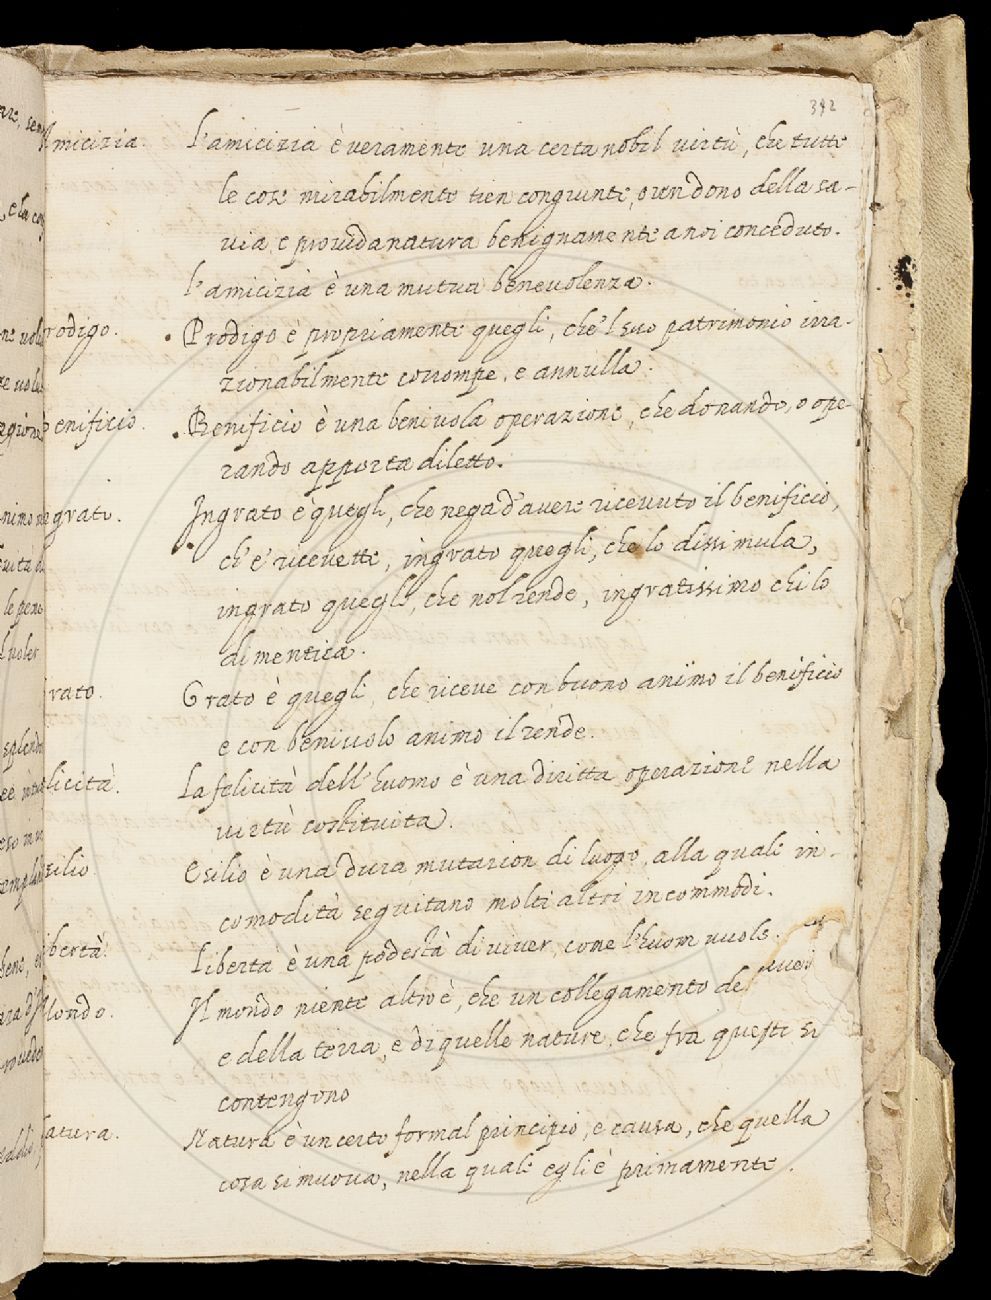 392
Amicizia. L'amicizia è veramente una certa nobil virtù, che tutte
le cose mirabilmente tien congiunte, ovvendono della sa-
via, e provida natura benignamente a noi conceduto.
L'amicizia è una mutua benevolenza.
rodigo. Prodigo è propriamente quegli, che 'l suo patrimonio irra-
zionabilmente corrompe, e annulla.
Benificio. Benificio è una benivola operazione, che donando, o ope-
rando apporta diletto.
ngrato. Ingrato è quegli, che nega d'avere ricevuto il benificio,
ch'e' ricevette, ingrato quegli, che lo dissimula,
ingrato quegli, che nol rende, ingratissimo chi lo
dimentica.
rato. Grato è quegli, che riceve con buono animo il benificio
e con benivolo animo il rende.
licità. La felicità dell'huomo è una diritta operazione nella
virtù costituita.
silio Esilio è una dura mutazion di luogo, alla quale in-
comodità seguitano molti altri incommodi.
ibertà. Libertà è una podestà di viver, come l'huom vuole.
Mondo. Il mondo niente altro è, che un collegamento de
e della terra, e di quelle nature, che fra questi si
contengono
atura. Natura è un certo formal principio, e causa, che quella
cosa si muova, nella quale egli è primamente.